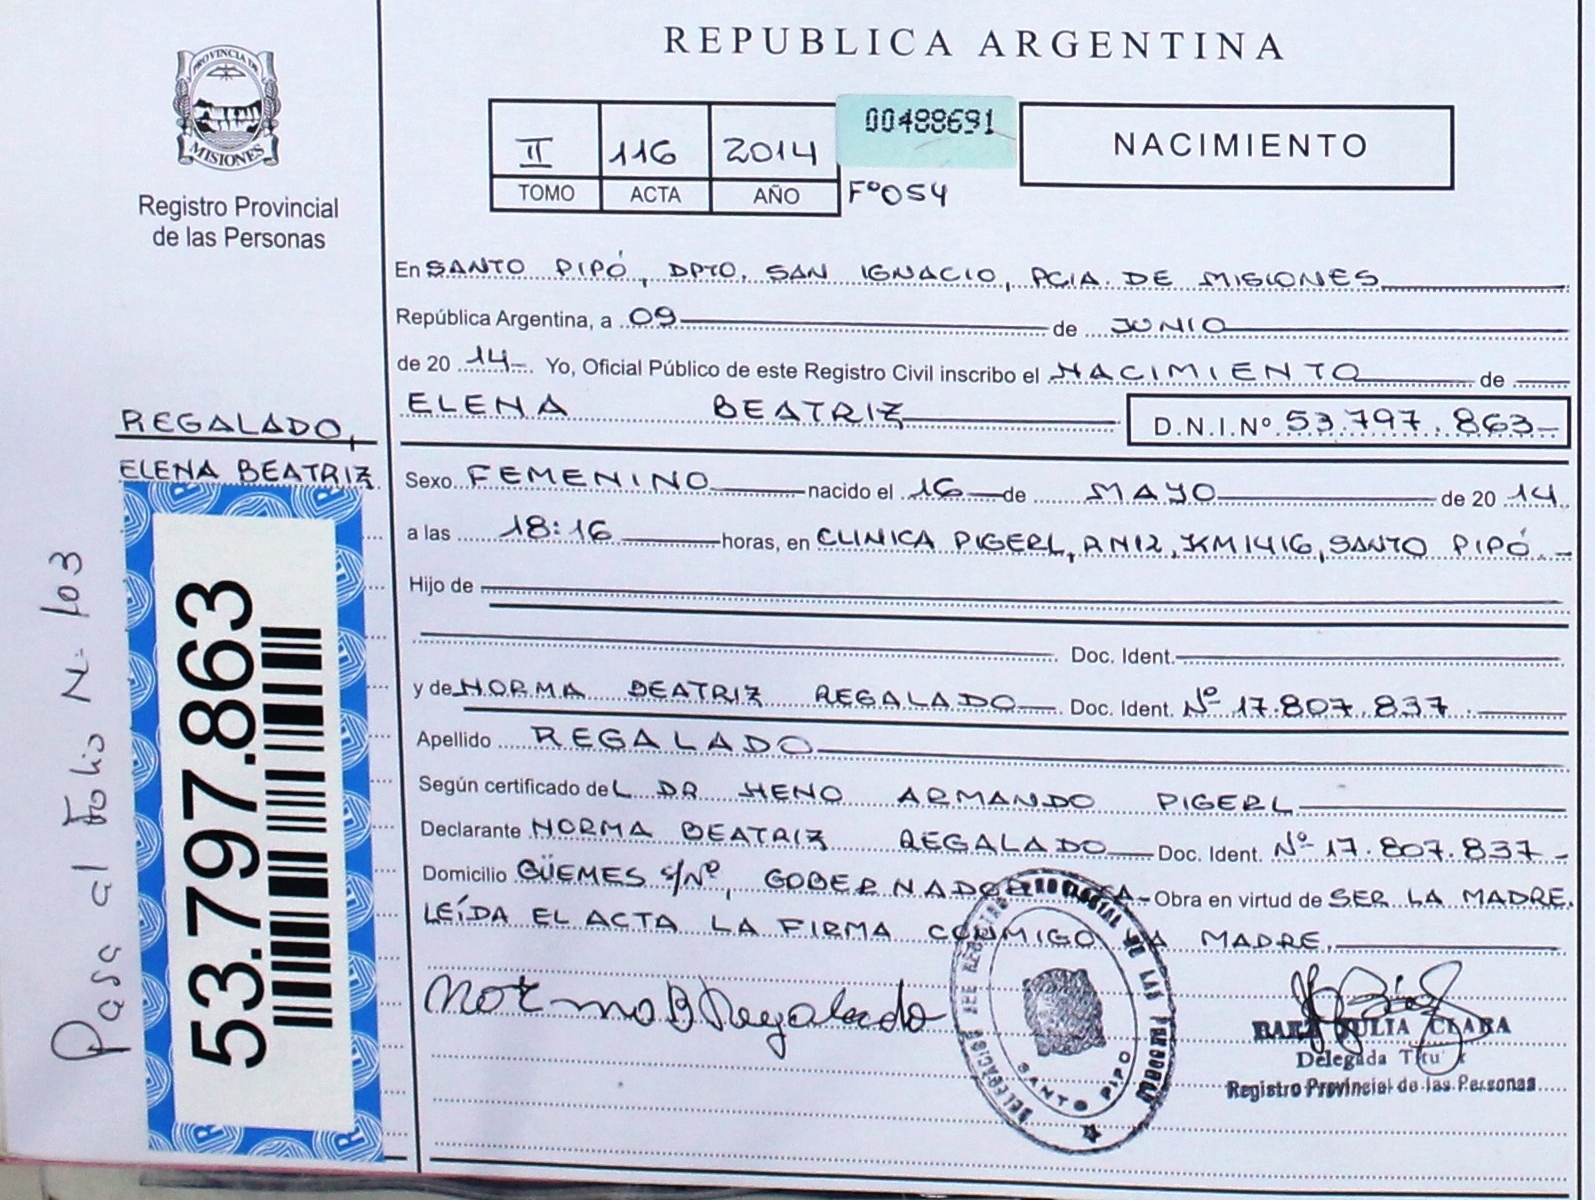 REPUBLICA ARGENTINA
PROVINCIA DE
MISIONES
Registro Provincial
de las Personas
II 116 2014
TOMO ACTA AÑO
00488691
Fº054
NACIMIENTO
En SANTO PIPÓ, DPTO. SAN IGNACIO, PCIA. DE MISIONES
República Argentina, a 09 de JUNIO
de 20 14 Yo, Oficial Público de este Registro Civil inscribo el NACIMIENTO de
ELENA BEATRIZ D.N.I.Nº 53.797.863
REGALADO,
ELENA BEATRIZ
Sexo FEMENINO nacido el 16 de MAYO de 20 14
a las 18:16 horas, en CLINICA PIGERL, RN12, KM1416, SANTO PIPÓ.-
Hijo de
Doc. Ident.
y de NORMA BEATRIZ REGALADO Doc. Ident. Nº 17.807.837
Apellido REGALADO
Según certificado de L DR HENO ARMANDO PIGERL
Declarante NORMA BEATRIZ REGALADO Doc. Ident. Nº 17.807.837
Domicilio GÜEMES S/Nº, GOBERNADOR Obra en virtud de SER LA MADRE.
LEÍDA EL ACTA LA FIRMA CONMIGO LA MADRE.
Norma B Regalado
JULIA CLARA
Delegada
Registro Provincial de las Personas
SANTO PIPO
53.797.863
Pasa al Folio N. 103